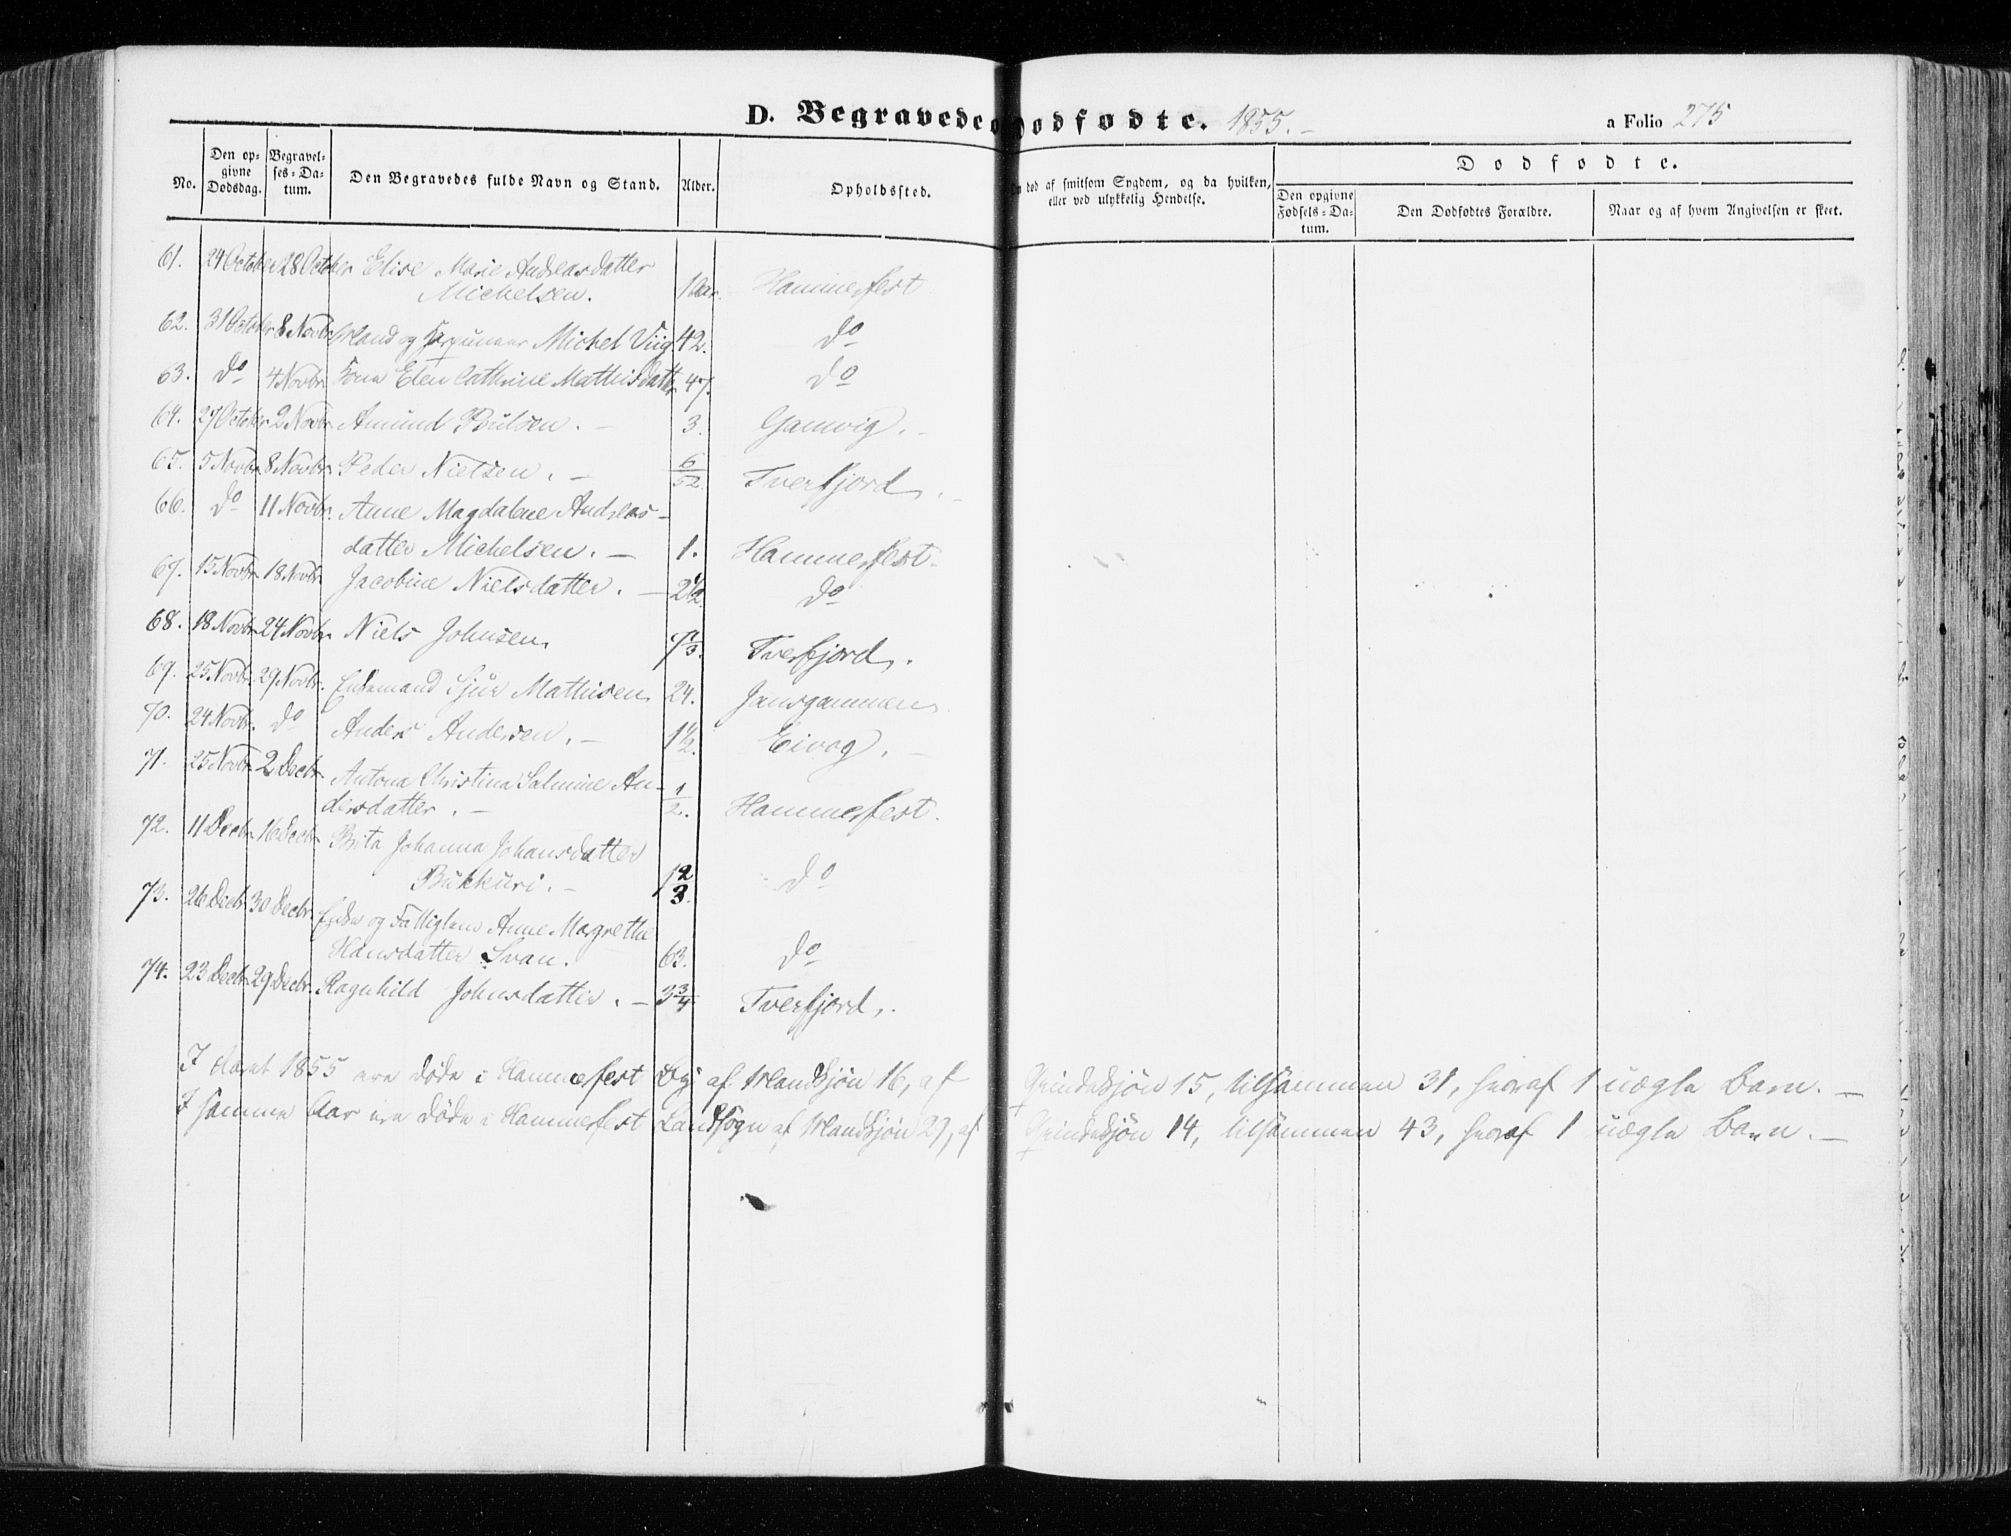 D. Begravede o Dødfødte. 1855. a Folio 275
No. Den opgivne Dødsdag. Begravelses-Datum. Den Begravedes fulde Navn og Stand. Alder. Opholdssted. død af smitsom Sygdom, og da hvilken, eller ved ulykkelig Hendelse. Dødfødte.
Den opgivne Fødsels-Datum. Den Dødfødtes Forældre. Naar og af hvem Angivelsen er skeet.
61. 24 October 28 October Elise Marie Andreasdatter
Michelsen. 1 Aar. Hammerfest
62. 31 October 8 Novbr. Mand og Michel Viig 42. do
63. do 4 Novbr. Kone Elen Cathrine Mathisdatter 47. do
64. 27 October 2 Novbr. Amund Poulsen. – 3. Gamvig. –
65. 5 Novbr. 8 Novbr. Peder Nielsen. – 6/52. Tverfjord. –
66. do 11 Novbr. Anne Magdalene Andreas-
datter Michelsen. – 1. Hammerfest.
67. 15 Novbr. 18 Novbr. Jacobine Nielsdatter. – 2 1/2. do
68. 18 Novbr. 24 Novbr. Niels Johnsen. 7 1/3. Tverfjord.
69. 25 Novbr. 29 Novbr. Enkemand Sjur Mathisen 24. Jansgammen
70. 24 Novbr. do Anders Andersen. – 1 1/2. Eivog. –
71. 25 Novbr. 2 Decbr. Antona Christina Salmine An-
dersdatter. – 1/2. Hammerfest.
72. 11 Decbr. 16 Decbr. Brita Johanna Johansdatter
Bukkuri. – 1 2/3. do
73. 26 Decbr. 30 Decbr. Enke og Fattiglem Anne Magrethe
Hansdatter Svan. 63. do
74. 23 Decbr. 29 Decbr. Ragnhild Johnsdatter. – 3 3/4 Tverfjord.
I Aaret 1855 ere døde i Hammerfest By af Mandkjøn 16, af Qvindekjøn 15, tilsammen 31, heraf 1 uægte Barn. –
I samme Aar ere døde i Hammerfest Landsogn af Mandkjøn 29, af Qvindekjøn 14, tilsammen 43, heraf 1 uægte Barn. –